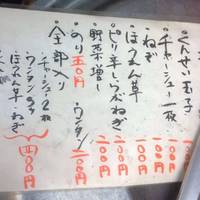 くんせい玉子 一〇〇円
チャーシュー一枚 一〇〇円
ねぎ 一〇〇円
ほうれん草 一〇〇円
ピリ辛しらがねぎ 一〇〇円
野菜増し 一〇〇円
のり 五〇円 ワンタン 一〇〇円
全部入り
・チャーシュー2枚
・ワンタン
・ほうれん草・ねぎ
四〇〇円